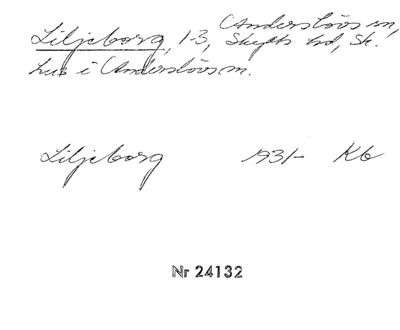 Liljeborg, 1-3, Anderslövs m,
Skytts hd, Sk.
hus i Anderslövs m.
Liljeborg 1931- Kb
Nr 24132